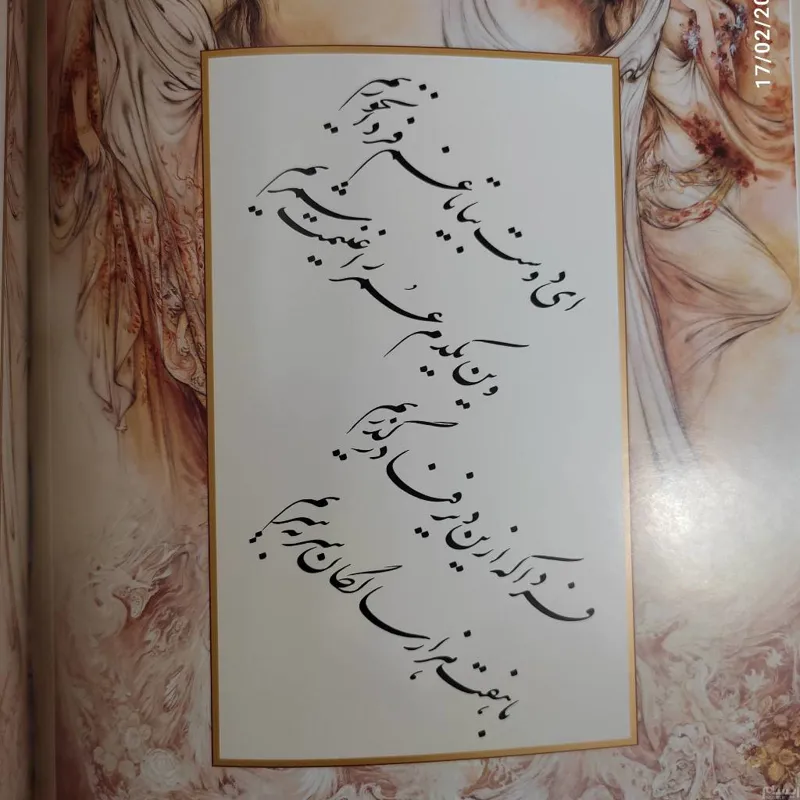 ای دوست بیا تا غم فردا نخوریم
وین یکدم عمر را غنیمت شمریم
فردا که ازین دیر فنا درگذریم
با هفت هزار سالگان سر به سریم
17/02/20